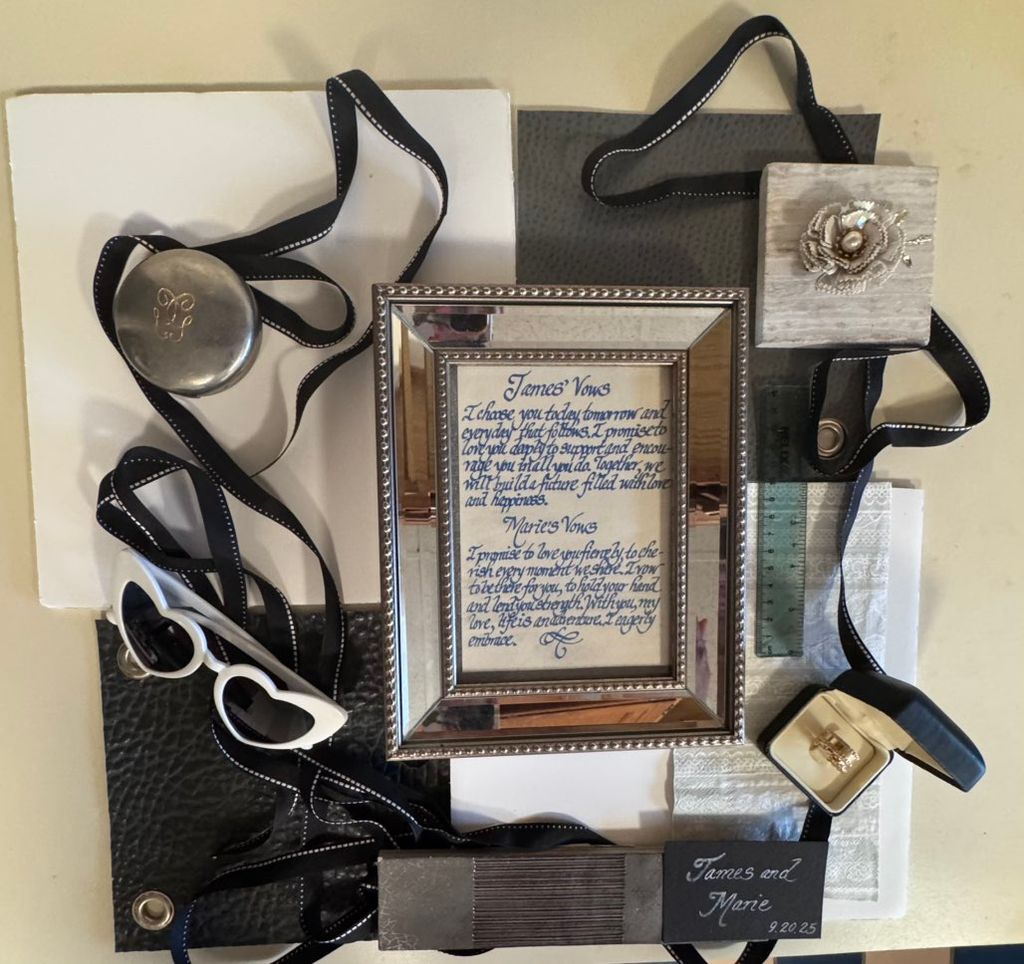 James' Vows
I choose you today, tomorrow and
everyday that follows. I promise to
love you deeply to support and encou-
rage you in all you do. Together, we
will build a future filled with love
and happiness.
Marie's Vows
I promise to love you fiercely, to che-
rish every moment we share. I vow
to be there for you, to hold your hand
and lend you strength. With you, my
love, life is an adventure. I eagerly
embrace.
James and
Marie
9.20.25